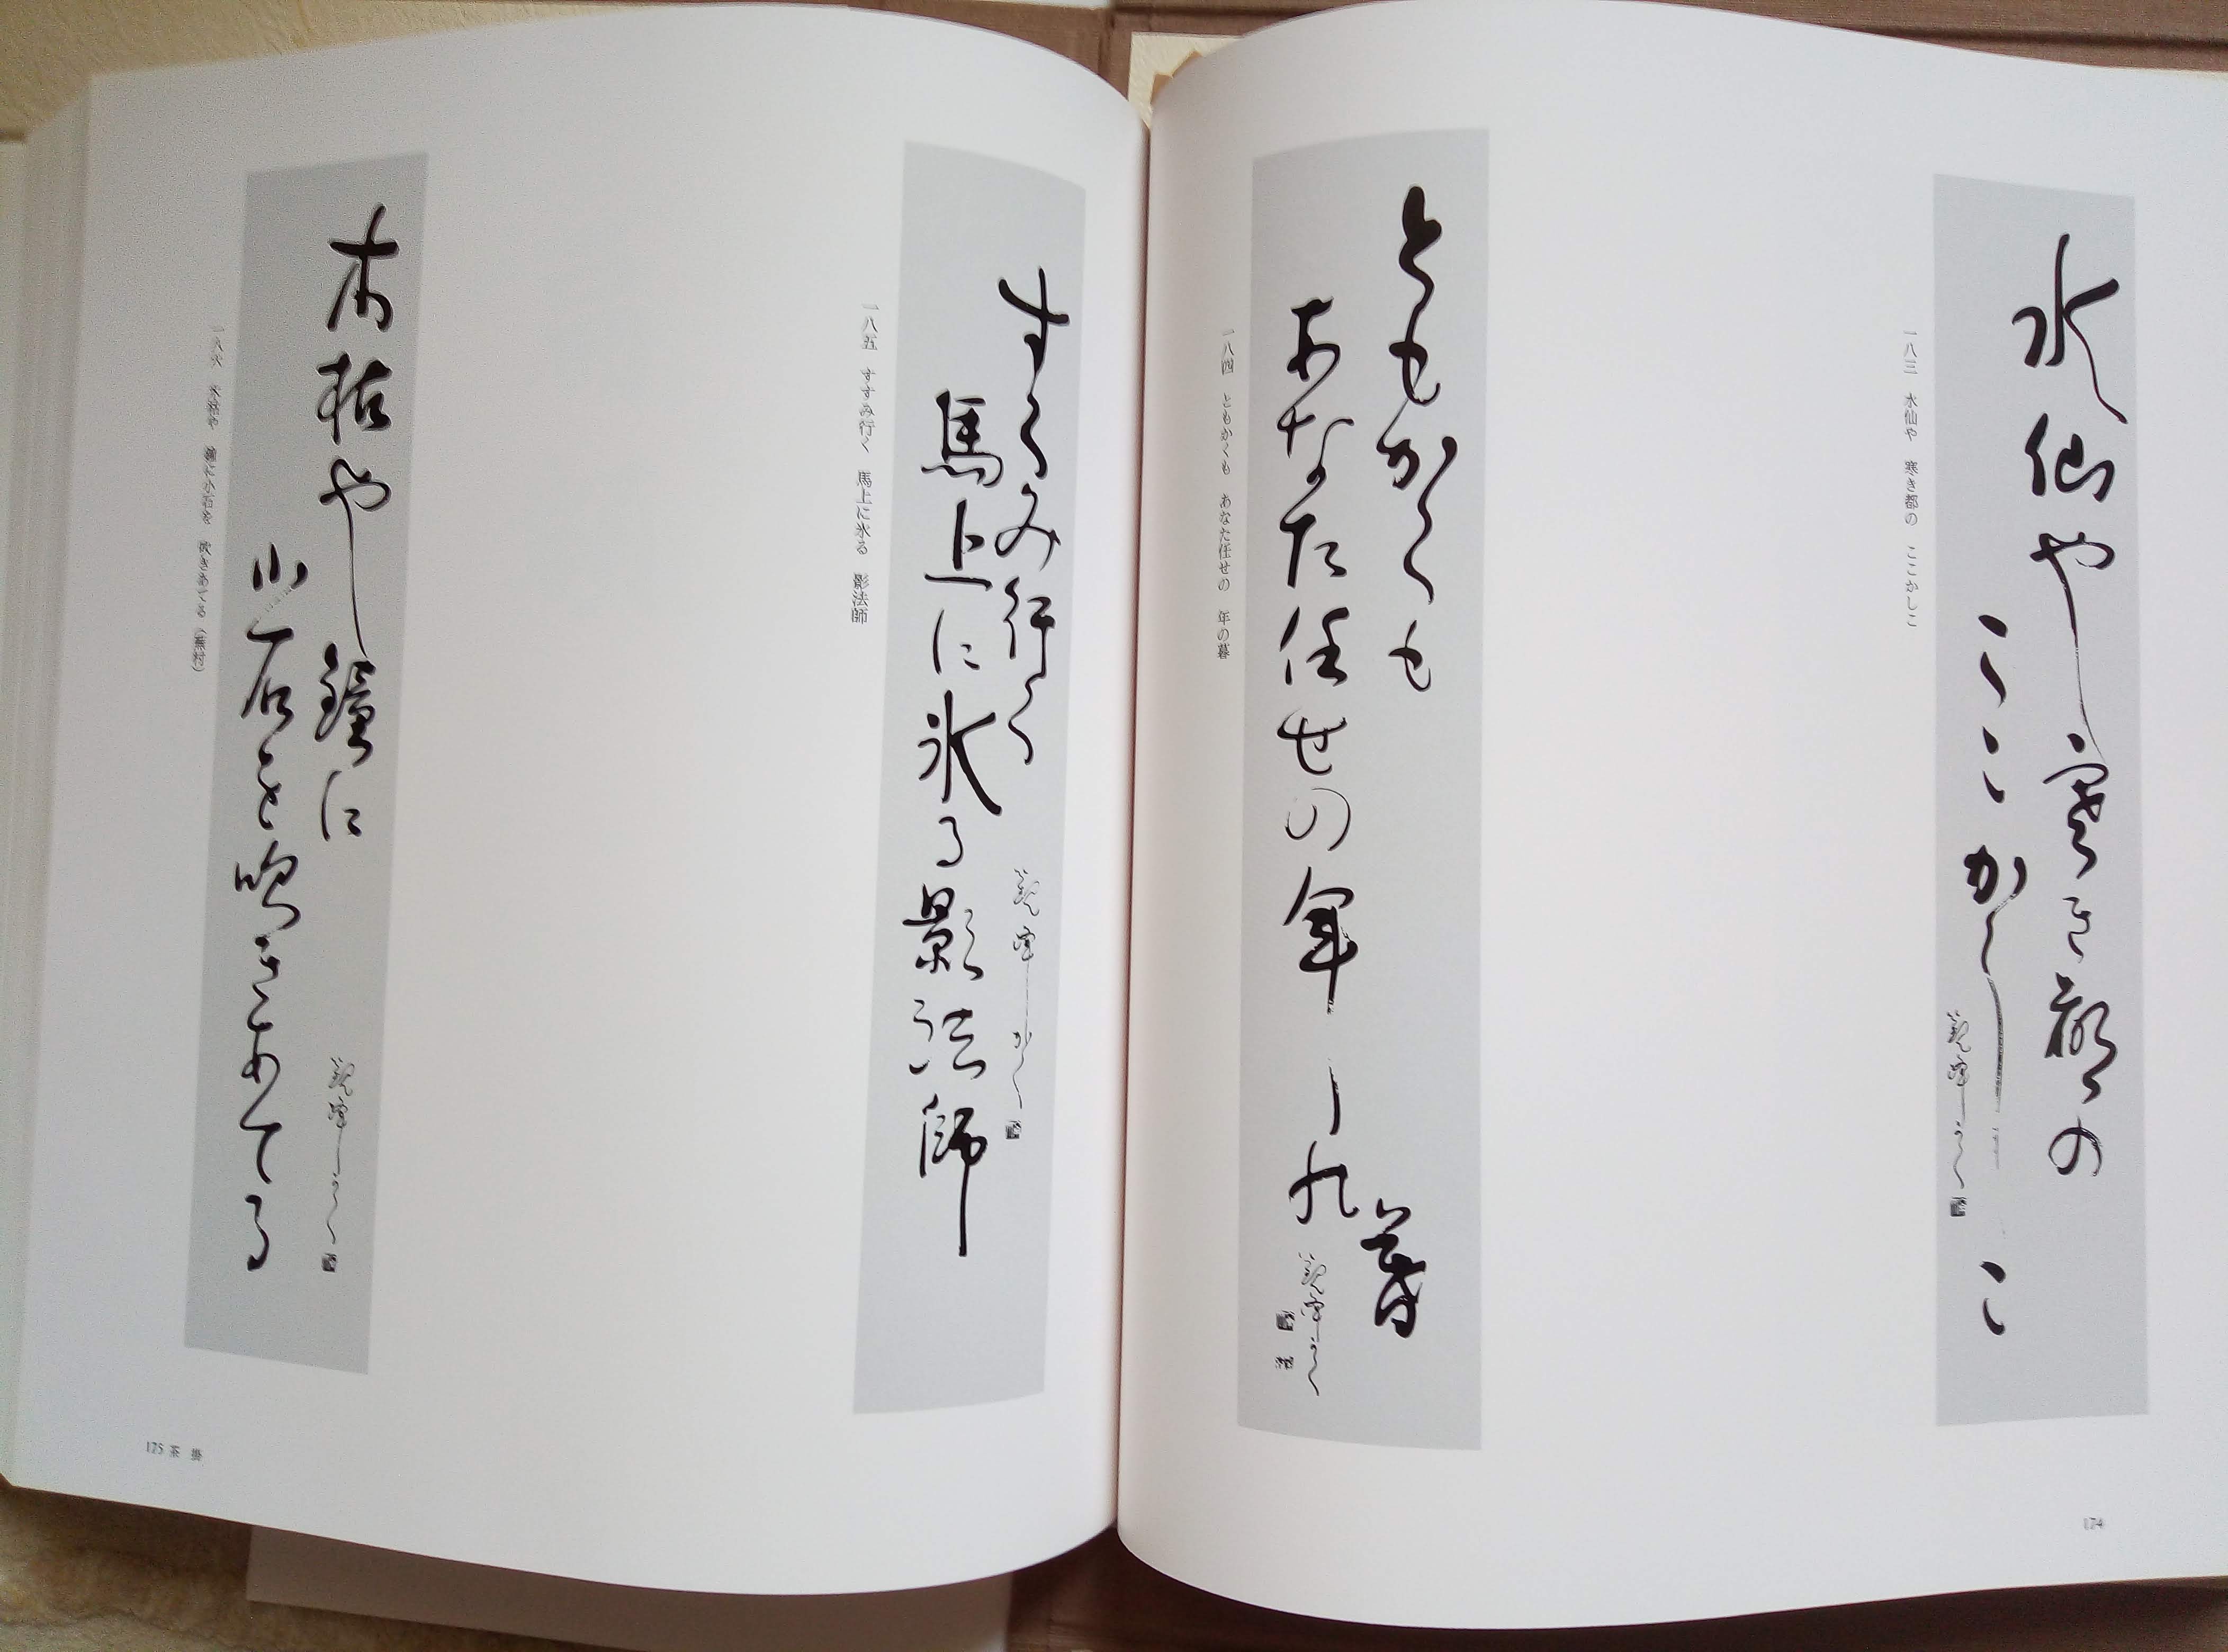 水仙や寒き都の
ここかしこ
一八三 水仙や 寒き都の ここかしこ
ともかくも
あなた任せの年
暮
一八四 ともかくも あなた任せの 年の暮
174
すゝみ行く
馬上に氷る影法師
一八五 すすみ行く 馬上に氷る 影法師
木枯や鐘に
小石を吹きあてる
一八六 木枯や 鐘に小石を 吹きあてる（蕪村）
175 茶 掛